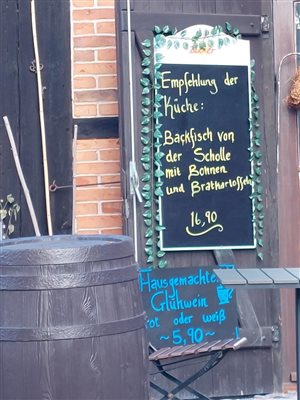 Empfehlung der
Küche:
Backfisch von
der Scholle
mit Bohnen
und Bratkartoffeln
16,90
Hausgemachter
Glühwein
rot oder weiß
~5,90~